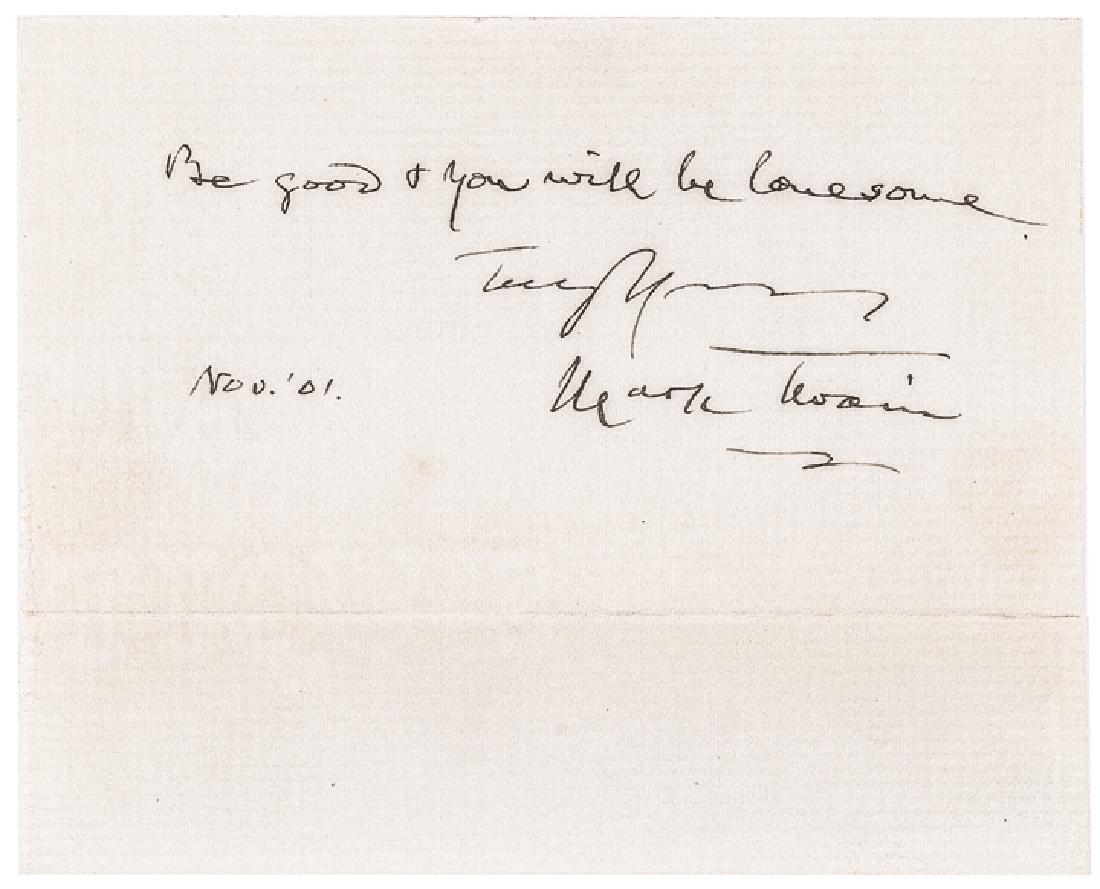 Be good & you will be lonesome.
Truly Yours
Nov. '01.
Mark Twain